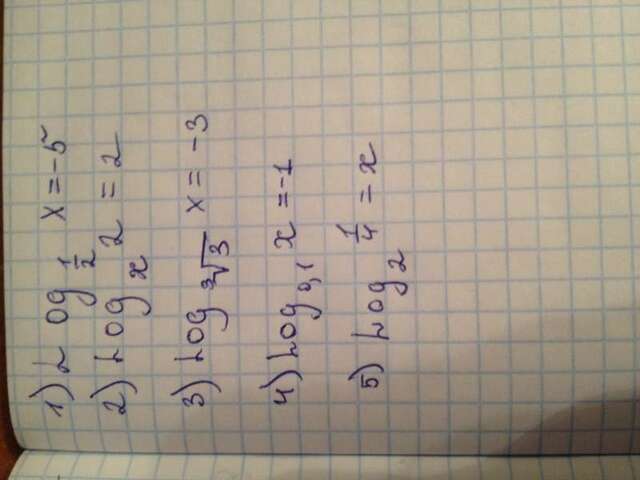 1) Log_{1/2} x = -5
2) Log_x 2 = 2
3) Log_{∛3} x = -3
4) Log_{0,1} x = -1
5) Log_2 1/4 = x